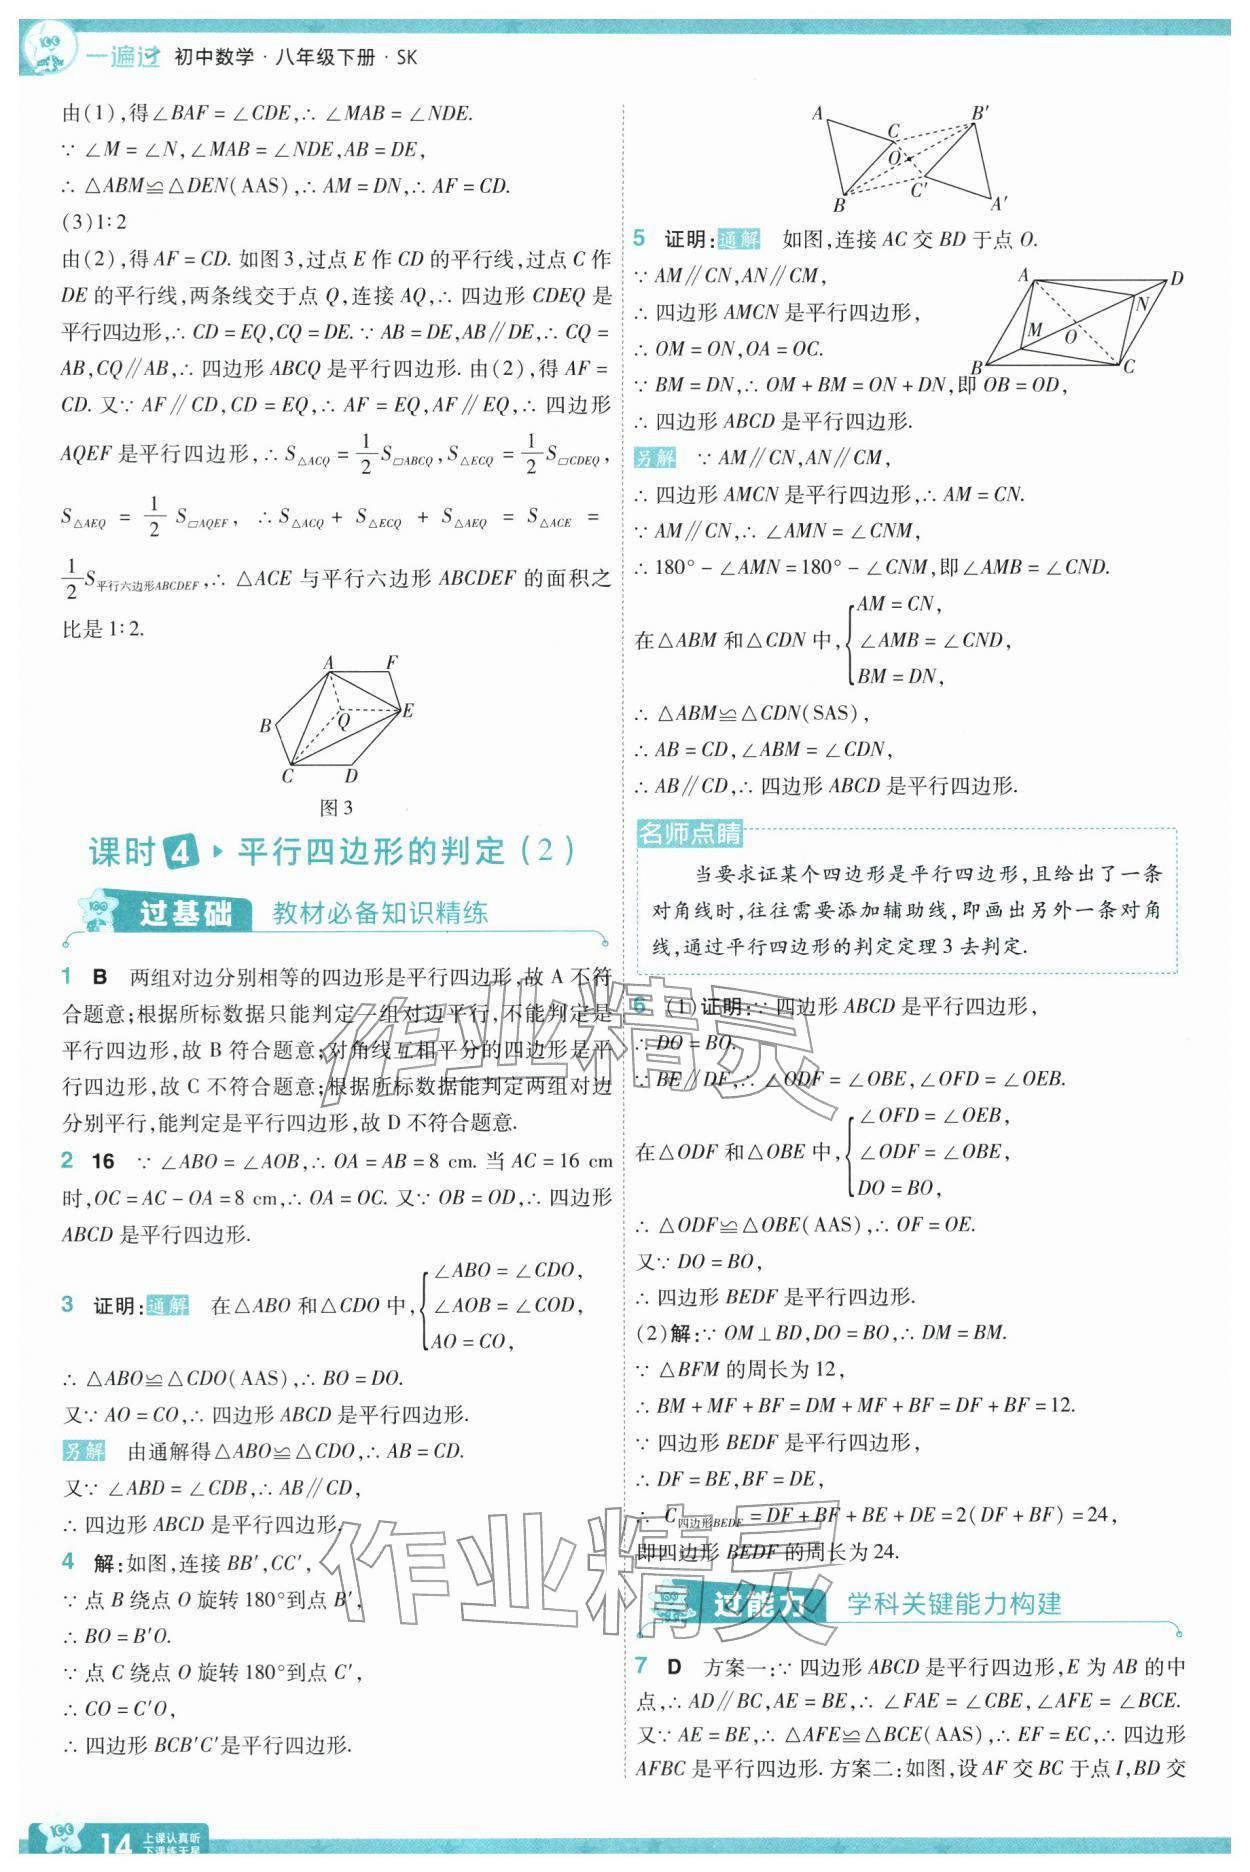 一遍过 初中数学·八年级下册·SK
由(1),得∠BAF=∠CDE,∴ ∠MAB=∠NDE.
∵ ∠M=∠N,∠MAB=∠NDE,AB=DE,
∴ △ABM≌△DEN(AAS),∴ AM=DN,∴ AF=CD.
(3)1∶2
由(2),得 AF=CD. 如图3,过点 E 作 CD 的平行线,过点 C 作
DE 的平行线,两条线交于点 Q,连接 AQ,∴ 四边形 CDEQ 是
平行四边形,∴ CD=EQ,CQ=DE. ∵ AB=DE,AB∥DE,∴ CQ=
AB,CQ∥AB,∴ 四边形 ABCQ 是平行四边形. 由(2),得 AF=
CD. 又∵ AF∥CD,CD=EQ,∴ AF=EQ,AF∥EQ,∴ 四边形
AQEF 是平行四边形,∴ S△ACQ=1/2S▱ABCQ,S△ECQ=1/2S▱CDEQ,
S△AEQ=1/2S▱AQEF,∴ S△ACQ+S△ECQ+S△AEQ=S△ACE=
1/2S平行六边形ABCDEF,∴ △ACE 与平行六边形 ABCDEF 的面积之
比是 1∶2.
A F
B Q E
C D
图3
课时4 平行四边形的判定(2)
过基础 教材必备知识精练
1 B 两组对边分别相等的四边形是平行四边形,故 A 不符
合题意;根据所标数据只能判定一组对边平行,不能判定是
平行四边形,故 B 符合题意;对角线互相平分的四边形是平
行四边形,故 C 不符合题意;根据所标数据能判定两组对边
分别平行,能判定是平行四边形,故 D 不符合题意.
2 16 ∵ ∠ABO=∠AOB,∴ OA=AB=8 cm. 当 AC=16 cm
时,OC=AC-OA=8 cm,∴ OA=OC. 又∵ OB=OD,∴ 四边形
ABCD 是平行四边形.
3 证明:通解 在△ABO 和△CDO 中,{∠ABO=∠CDO,
∠AOB=∠COD,
AO=CO,
∴ △ABO≌△CDO(AAS),∴ BO=DO.
又∵ AO=CO,∴ 四边形 ABCD 是平行四边形.
另解 由通解得△ABO≌△CDO,∴ AB=CD.
又∵ ∠ABD=∠CDB,∴ AB∥CD,
∴ 四边形 ABCD 是平行四边形.
4 解:如图,连接 BB′,CC′,
∵ 点 B 绕点 O 旋转 180°到点 B′,
∴ BO=B′O.
∵ 点 C 绕点 O 旋转 180°到点 C′,
∴ CO=C′O,
∴ 四边形 BCB′C′是平行四边形.
A C B′
O
B C′ A′
5 证明:通解 如图,连接 AC 交 BD 于点 O.
∵ AM∥CN,AN∥CM,
∴ 四边形 AMCN 是平行四边形,
∴ OM=ON,OA=OC.
∵ BM=DN,∴ OM+BM=ON+DN,即 OB=OD,
∴ 四边形 ABCD 是平行四边形.
A D
N
M O
B C
另解 ∵ AM∥CN,AN∥CM,
∴ 四边形 AMCN 是平行四边形,∴ AM=CN.
∵ AM∥CN,∴ ∠AMN=∠CNM,
∴ 180°-∠AMN=180°-∠CNM,即∠AMB=∠CND.
在△ABM 和△CDN 中,{AM=CN,
∠AMB=∠CND,
BM=DN,
∴ △ABM≌△CDN(SAS),
∴ AB=CD,∠ABM=∠CDN,
∴ AB∥CD,∴ 四边形 ABCD 是平行四边形.
名师点睛
当要求证某个四边形是平行四边形,且给出了一条
对角线时,往往需要添加辅助线,即画出另外一条对角
线,通过平行四边形的判定定理3去判定.
6 (1)证明:∵ 四边形 ABCD 是平行四边形,
∴ DO=BO.
∵ BE∥DF,∴ ∠ODF=∠OBE,∠OFD=∠OEB.
在△ODF 和△OBE 中,{∠OFD=∠OEB,
∠ODF=∠OBE,
DO=BO,
∴ △ODF≌△OBE(AAS),∴ OF=OE.
又∵ DO=BO,
∴ 四边形 BEDF 是平行四边形.
(2)解:∵ OM⊥BD,DO=BO,∴ DM=BM.
∵ △BFM 的周长为 12,
∴ BM+MF+BF=DM+MF+BF=DF+BF=12.
∵ 四边形 BEDF 是平行四边形,
∴ DF=BE,BF=DE,
∴ C四边形BEDF=DF+BF+BE+DE=2(DF+BF)=24,
即四边形 BEDF 的周长为 24.
过能力 学科关键能力构建
7 D 方案一:∵ 四边形 ABCD 是平行四边形,E 为 AB 的中
点,∴ AD∥BC,AE=BE,∴ ∠FAE=∠CBE,∠AFE=∠BCE.
又∵ AE=BE,∴ △AFE≌△BCE(AAS),∴ EF=EC,∴ 四边形
AFBC 是平行四边形. 方案二:如图,设 AF 交 BC 于点 I,BD 交
作业精灵
作业精灵
14 上课认真听
下课练天星